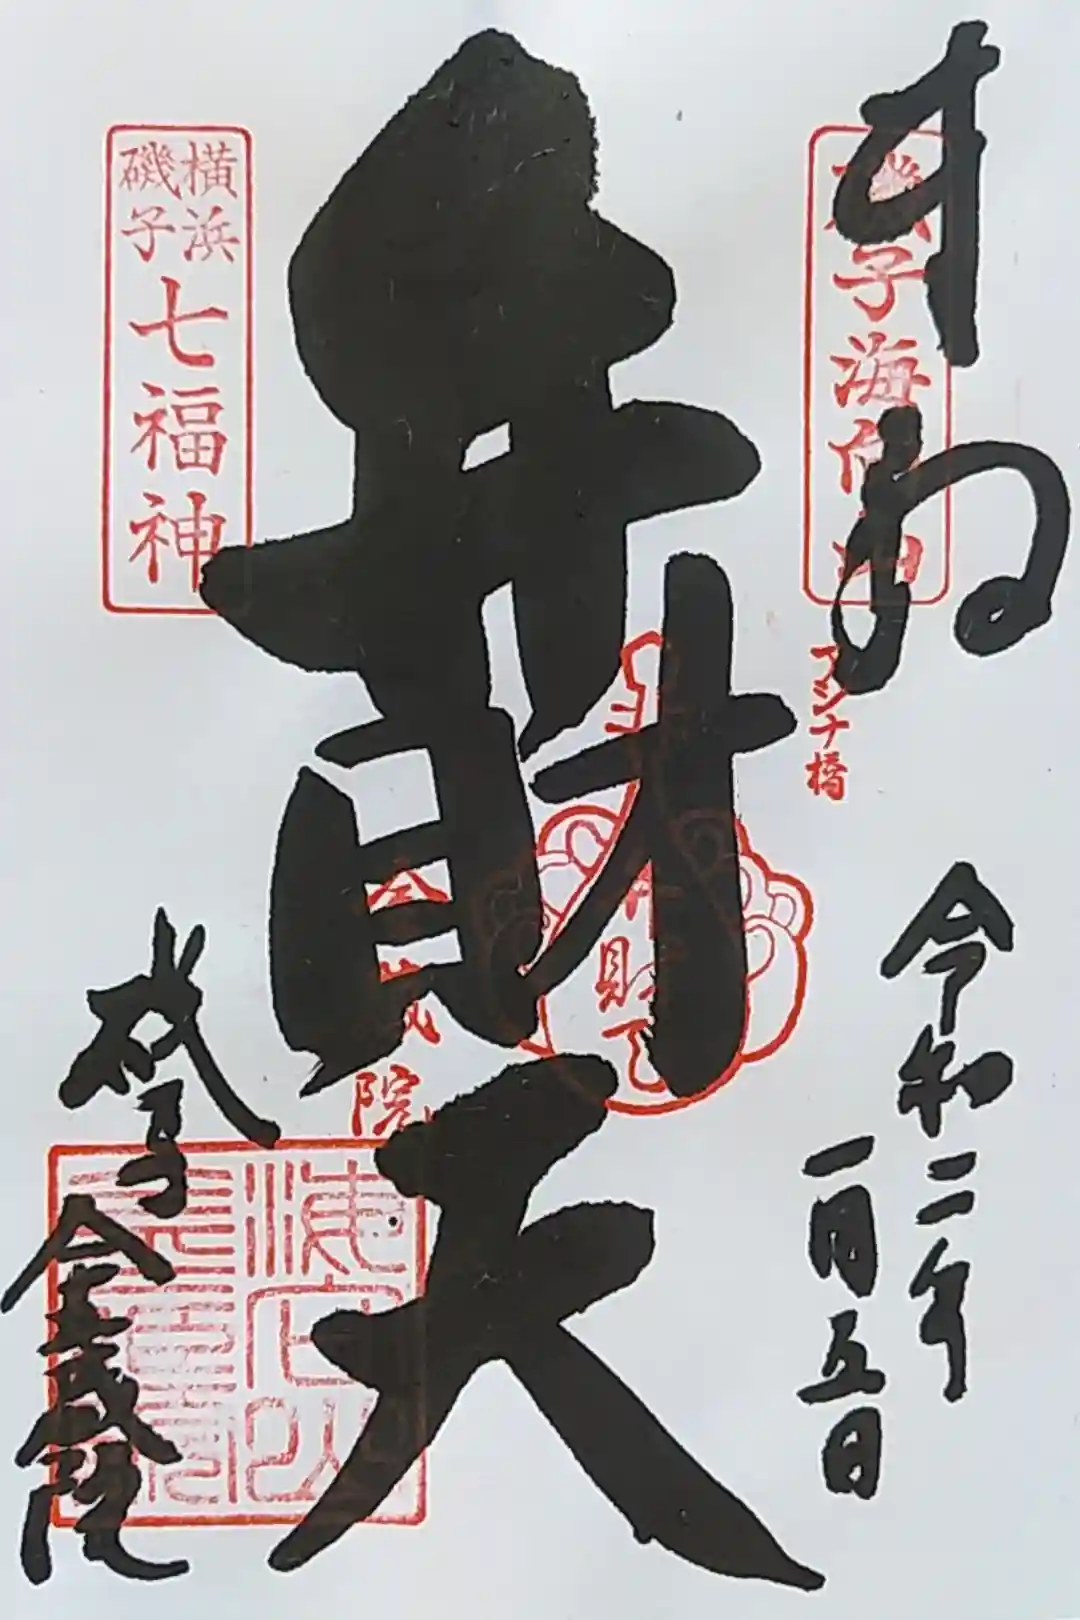 奉拝
磯子海向山
アシナ橋
令和二年
一月五日
弁財天
弁財天
金蔵院
横浜
磯子
七福神
磯子
金蔵院